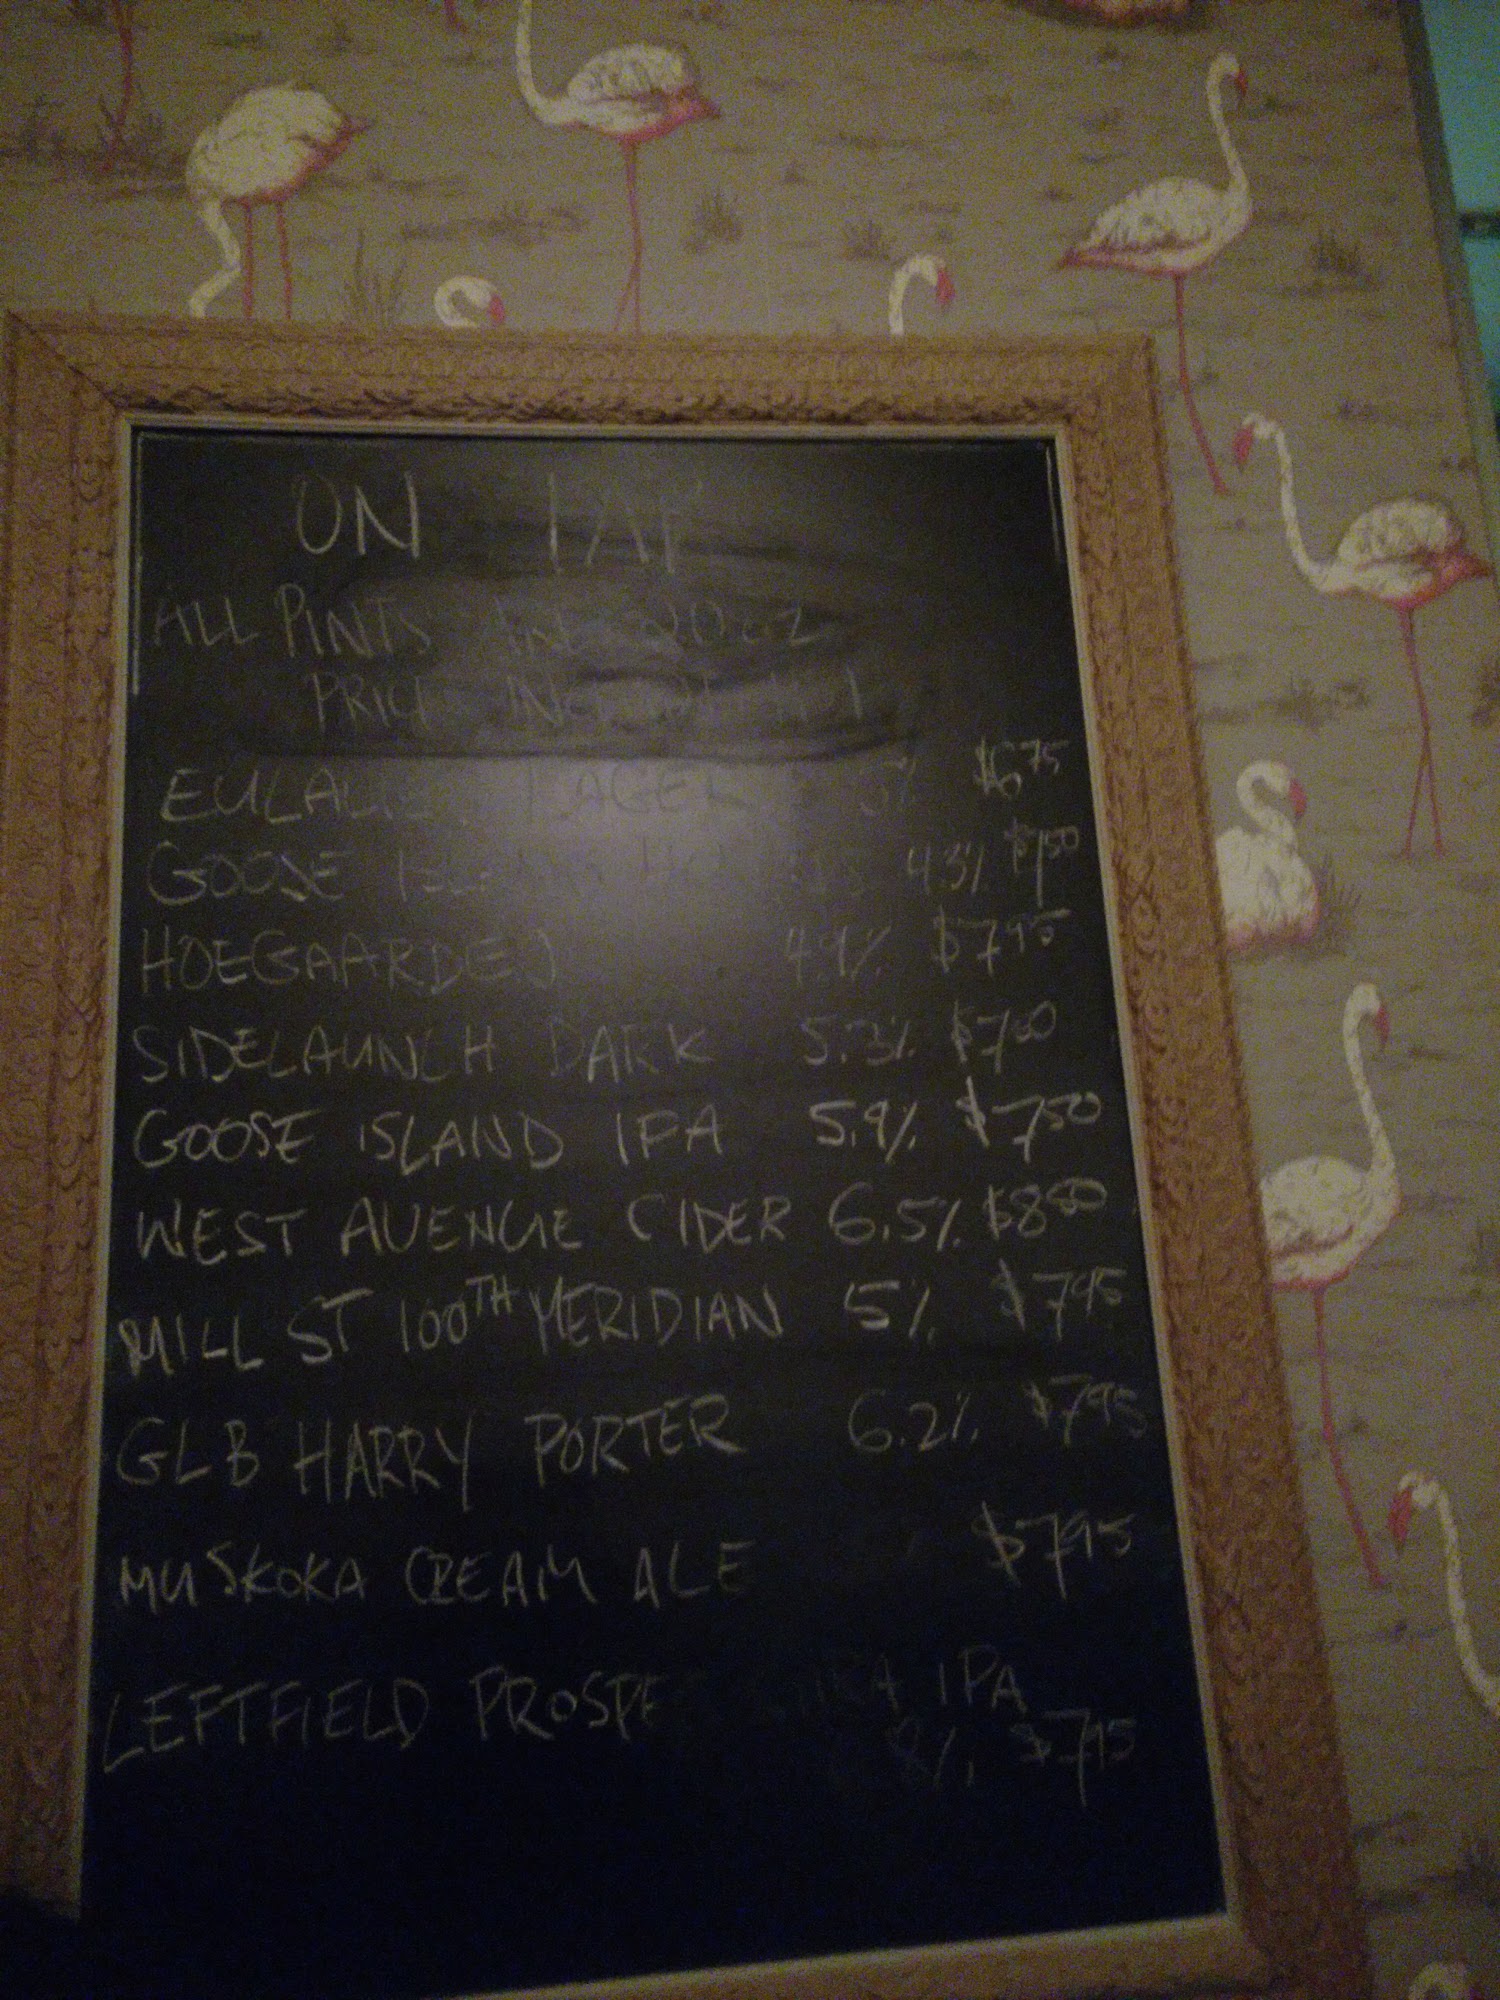 ON TAP
ALL PINTS ARE 20oz
PRICES
EULALIE LAGER 5% $6.75
GOOSE ISLAND 4.3% $7.50
HOEGAARDEN 4.9% $7.95
SIDELAUNCH DARK 5.3% $7.50
GOOSE ISLAND IPA 5.9% $7.50
WEST AVENUE CIDER 6.5% $8.50
MILL ST 100TH MERIDIAN 5% $7.95
GLB HARRY PORTER 6.2% $7.95
MUSKOKA CREAM ALE $7.95
LEFTFIELD IPA
$7.95